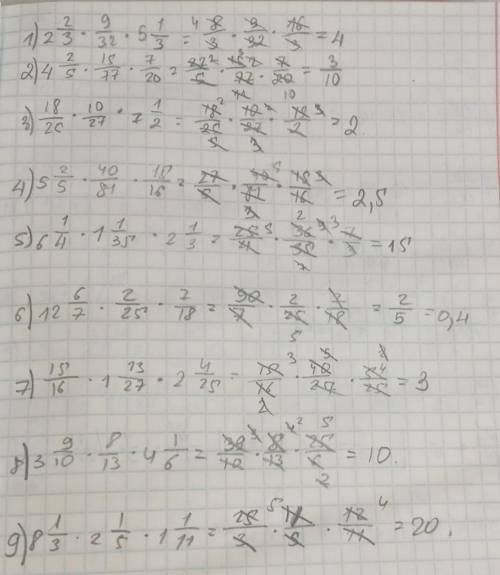 1) 2 2/3 · 9/32 · 5 1/3 = 8/3 · 9/32 · 16/3 = 4
2) 4 2/5 · 15/77 · 7/20 = 22/5 · 15/77 · 7/20 = 3/10
3) 18/25 · 10/27 · 7 1/2 = 18/25 · 10/27 · 15/2 = 2
4) 5 2/5 · 40/81 · 15/16 = 27/5 · 40/81 · 15/16 = 2,5
5) 6 1/4 · 1 1/35 · 2 1/3 = 25/4 · 36/35 · 7/3 = 15
6) 12 6/7 · 2/25 · 7/18 = 90/7 · 2/25 · 7/18 = 2/5 = 0,4
7) 15/16 · 1 13/27 · 2 4/25 = 15/16 · 40/27 · 54/25 = 3
8) 3 9/10 · 8/13 · 4 1/6 = 39/10 · 8/13 · 25/6 = 10.
9) 8 1/3 · 2 1/5 · 1 1/11 = 25/3 · 11/5 · 12/11 = 20.